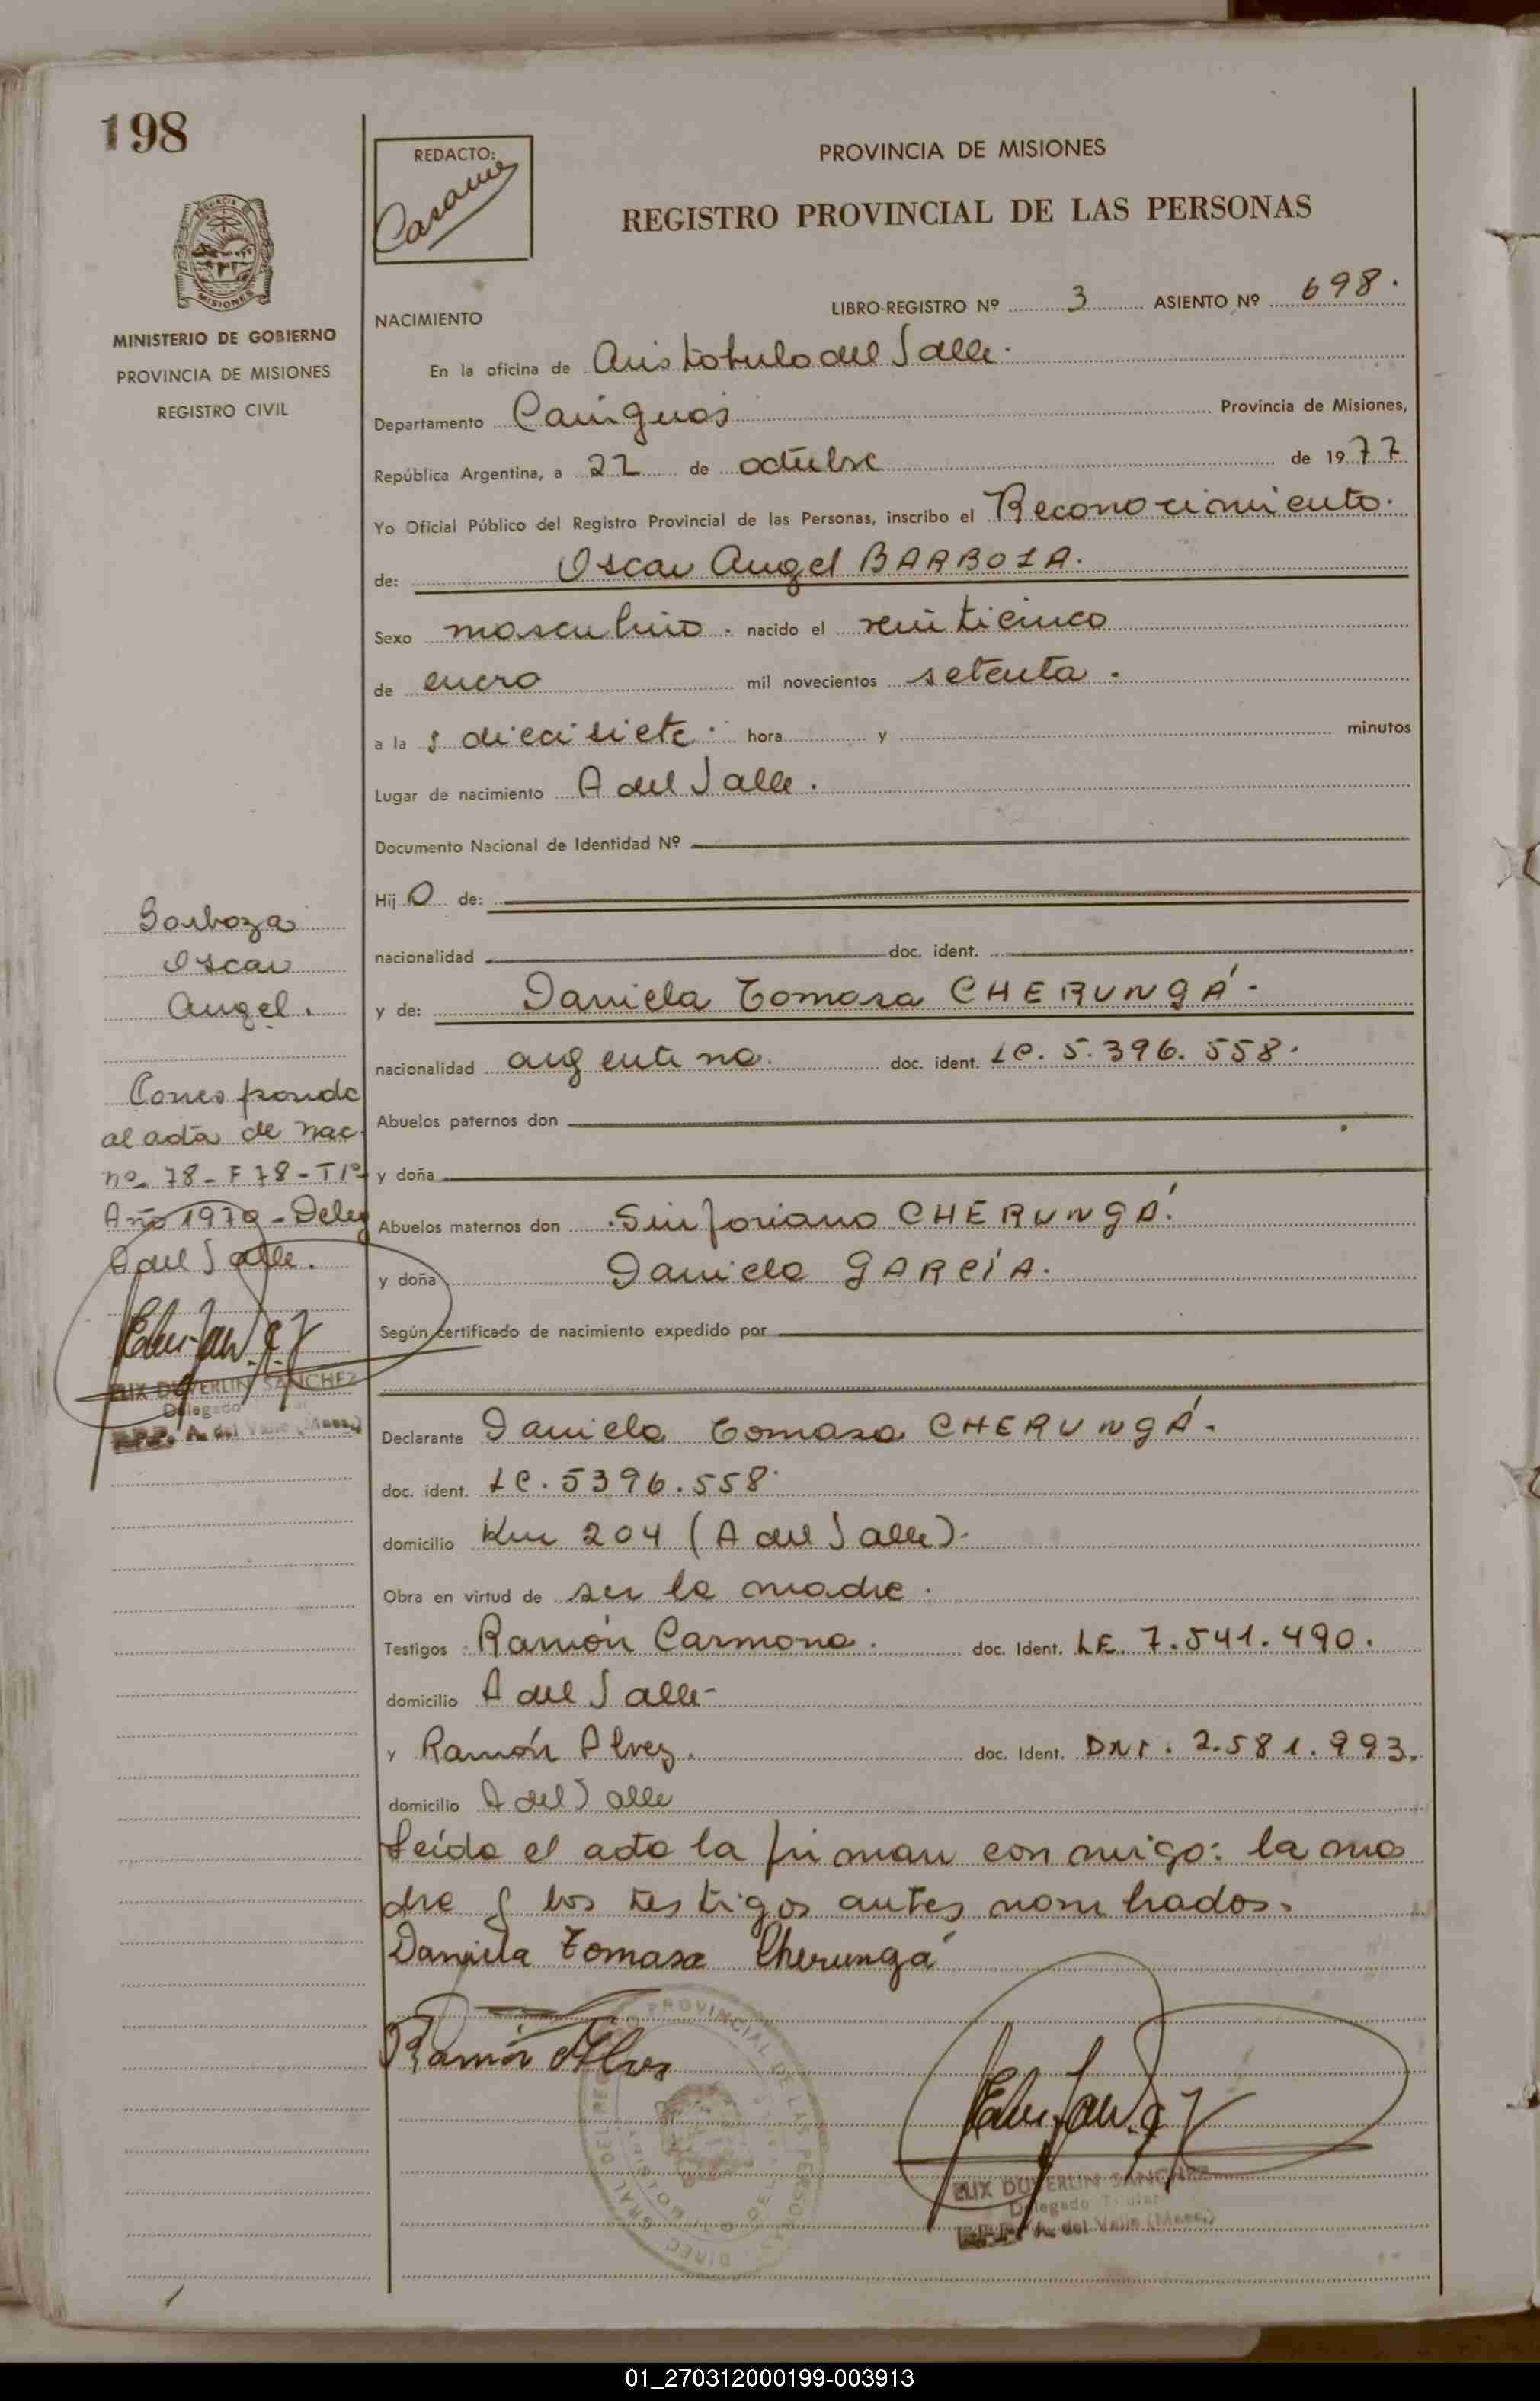 198
REDACTO:
PROVINCIA DE MISIONES
REGISTRO PROVINCIAL DE LAS PERSONAS
PROVINCIA
MISIONES
MINISTERIO DE GOBIERNO
PROVINCIA DE MISIONES
REGISTRO CIVIL
NACIMIENTO LIBRO-REGISTRO Nº 3 ASIENTO Nº 698.
En la oficina de Aristobulo del Valle.
Departamento Cainguas Provincia de Misiones,
República Argentina, a 22 de octubre de 1977
Yo Oficial Público del Registro Provincial de las Personas, inscribo el Reconocimiento.
de: Oscar Angel BARBOZA.
Sexo masculino. nacido el veinticinco
de enero mil novecientos setenta.
a la s diecisiete. hora y minutos
Lugar de nacimiento A del Valle.
Documento Nacional de Identidad Nº
Hij o de:
nacionalidad doc. ident.
y de: Daniela Tomasa CHERUNGÁ.
nacionalidad argentina. doc. ident. LC. 5.396.558.
Abuelos paternos don
y doña
Abuelos maternos don Sinforiano CHERUNGÁ.
y doña Daniela GARCÍA.
Según certificado de nacimiento expedido por
Declarante Daniela Tomasa CHERUNGÁ.
doc. ident. LC. 5396.558.
domicilio Km 204 (A del Valle).
Obra en virtud de ser la madre.
Testigos Ramón Carmona. doc. Ident. LE. 7.541.490.
domicilio A del Valle-
y Ramón Alvez. doc. Ident. DNI. 2.581.993.
domicilio A del Valle
Leída el acta la firman conmigo: la ma
dre y los testigos antes nombrados.
Daniela Tomasa Cherungá
Ramón Alves
ELIX DUVERLIN SANCHEZ
Delegado Titular
R.P.P. A. del Valle (Mnes.)
Barboza
Oscar
Angel.
Corresponde
al acta de nac.
nº 78-F78-T1º
Año 1970-Deleg
A del Valle.
ELIX DUVERLIN SANCHEZ
Delegado Titular
R.P.P. A. del Valle (Mnes.)
PROVINCIAL DE LAS PERSONAS
01_270312000199-003913